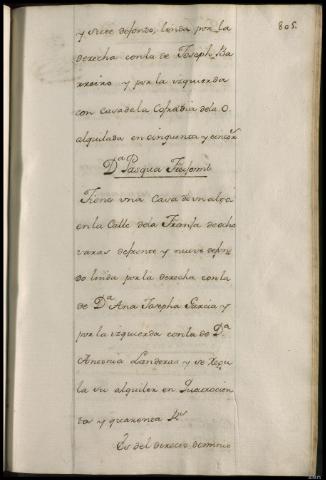 805.
y siete de fondo, linda por la
derecha con la de Joseph Ba
rreiro y por la izquierda
con casa de la Cofradia de la O
alquilada en cinquenta y cinco r.s
D.a Pasqua
Tiene una Casa de un alto
en la Calle de la Franja de ocho
varas de frente y nueve de fon
do linda por la derecha con la
de D.a Ana Josepha Garcia y
por la izquierda con la de D.a
Antonia Landeras y se regu
la su alquiler en Quatrocien
tos y quarenta r.s
Es del derecho dominio